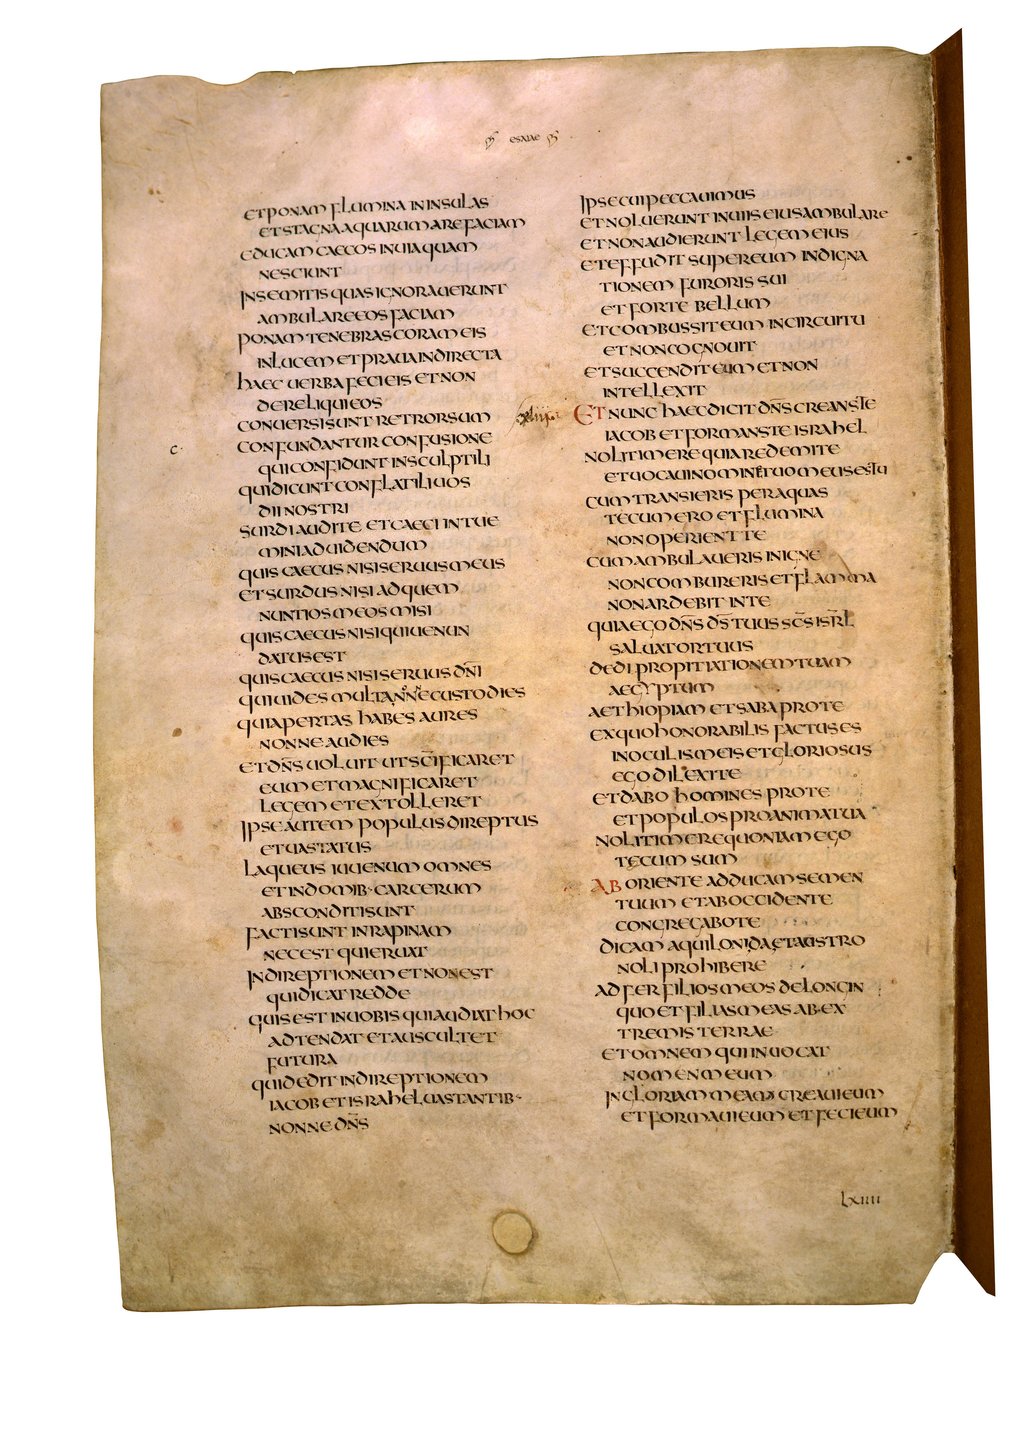 ESAIAE
ET PONAM FLUMINA IN INSULAS
ET STAGNA AQUARUM AREFACIAM
EDUCAM CAECOS IN UIA QUAM
NESCIUNT
IN SEMITIS QUAS IGNORAUERUNT
AMBULARE EOS FACIAM
PONAM TENEBRAS CORAM EIS
IN LUCEM ET PRAUA IN DIRECTA
HAEC UERBA FECI EIS ET NON
DERELIQUI EOS
CONUERSI SUNT RETRORSUM
C CONFUNDANTUR CONFUSIONE
QUI CONFIDUNT IN SCULPTILI
QUI DICUNT CONFLATILI UOS
DII NOSTRI
SURDI AUDITE ET CAECI INTUE
MINI AD UIDENDUM
QUIS CAECUS NISI SERUUS MEUS
ET SURDUS NISI AD QUEM
NUNTIOS MEOS MISI
QUIS CAECUS NISI QUI UENUN
DATUS EST
QUIS CAECUS NISI SERUUS DN̄I
QUI UIDES MULTA NN̄E CUSTODIES
QUI APERTAS HABES AURES
NONNE AUDIES
ET DN̄S UOLUIT UT SC̄IFICARET
EUM ET MAGNIFICARET
LEGEM ET EXTOLLERET
IPSE AUTEM POPULUS DIREPTUS
ET UASTATUS
LAQUEUS IUUENUM OMNES
ET IN DOMIB· CARCERUM
ABSCONDITI SUNT
FACTI SUNT IN RAPINAM
NEC EST QUI ERUAT
IN DIREPTIONEM ET NON EST
QUI DICAT REDDE
QUIS EST IN UOBIS QUI AUDIAT HOC
ADTENDAT ET AUSCULTET
FUTURA
QUI DEDIT IN DIREPTIONEM
IACOB ET ISRAHEL UASTANTIB·
NONNE DN̄S
IPSE CUI PECCAUIMUS
ET NOLUERUNT IN UIIS EIUS AMBULARE
ET NON AUDIERUNT LEGEM EIUS
ET EFFUDIT SUPER EUM INDIGNA
TIONEM FURORIS SUI
ET FORTE BELLUM
ET COMBUSSIT EUM IN CIRCUITU
ET NON COGNOUIT
ET SUCCENDIT EUM ET NON
INTELLEXIT
xliii ET NUNC HAEC DICIT DN̄S CREANS TE
IACOB ET FORMANS TE ISRAHEL
NOLI TIMERE QUIA REDEMI TE
ET UOCAUI NOMINE TUO MEUS ES TU
CUM TRANSIERIS PER AQUAS
TECUM ERO ET FLUMINA
NON OPERIENT TE
CUM AMBULAUERIS IN IGNE
NON COMBURERIS ET FLAMMA
NON ARDEBIT IN TE
QUIA EGO DN̄S DS̄ TUUS SC̄S ISRL̄
SALUATOR TUUS
DEDI PROPITIATIONEM TUAM
AEGYPTUM
AETHIOPIAM ET SABA PRO TE
EX QUO HONORABILIS FACTUS ES
IN OCULIS MEIS ET GLORIOSUS
EGO DILEXI TE
ET DABO HOMINES PRO TE
ET POPULOS PRO ANIMA TUA
NOLI TIMERE QUONIAM EGO
TECUM SUM
AB ORIENTE ADDUCAM SEMEN
TUUM ET AB OCCIDENTE
CONGREGABO TE
DICAM AQUILONI DA ET AUSTRO
NOLI PROHIBERE
ADFER FILIOS MEOS DE LONGIN
QUO ET FILIAS MEAS AB EX
TREMIS TERRAE
ET OMNEM QUI INUOCAT
NOMEN MEUM
IN GLORIAM MEAM CREAUI EUM
ET FORMAUI EUM ET FECI EUM
LXIIII